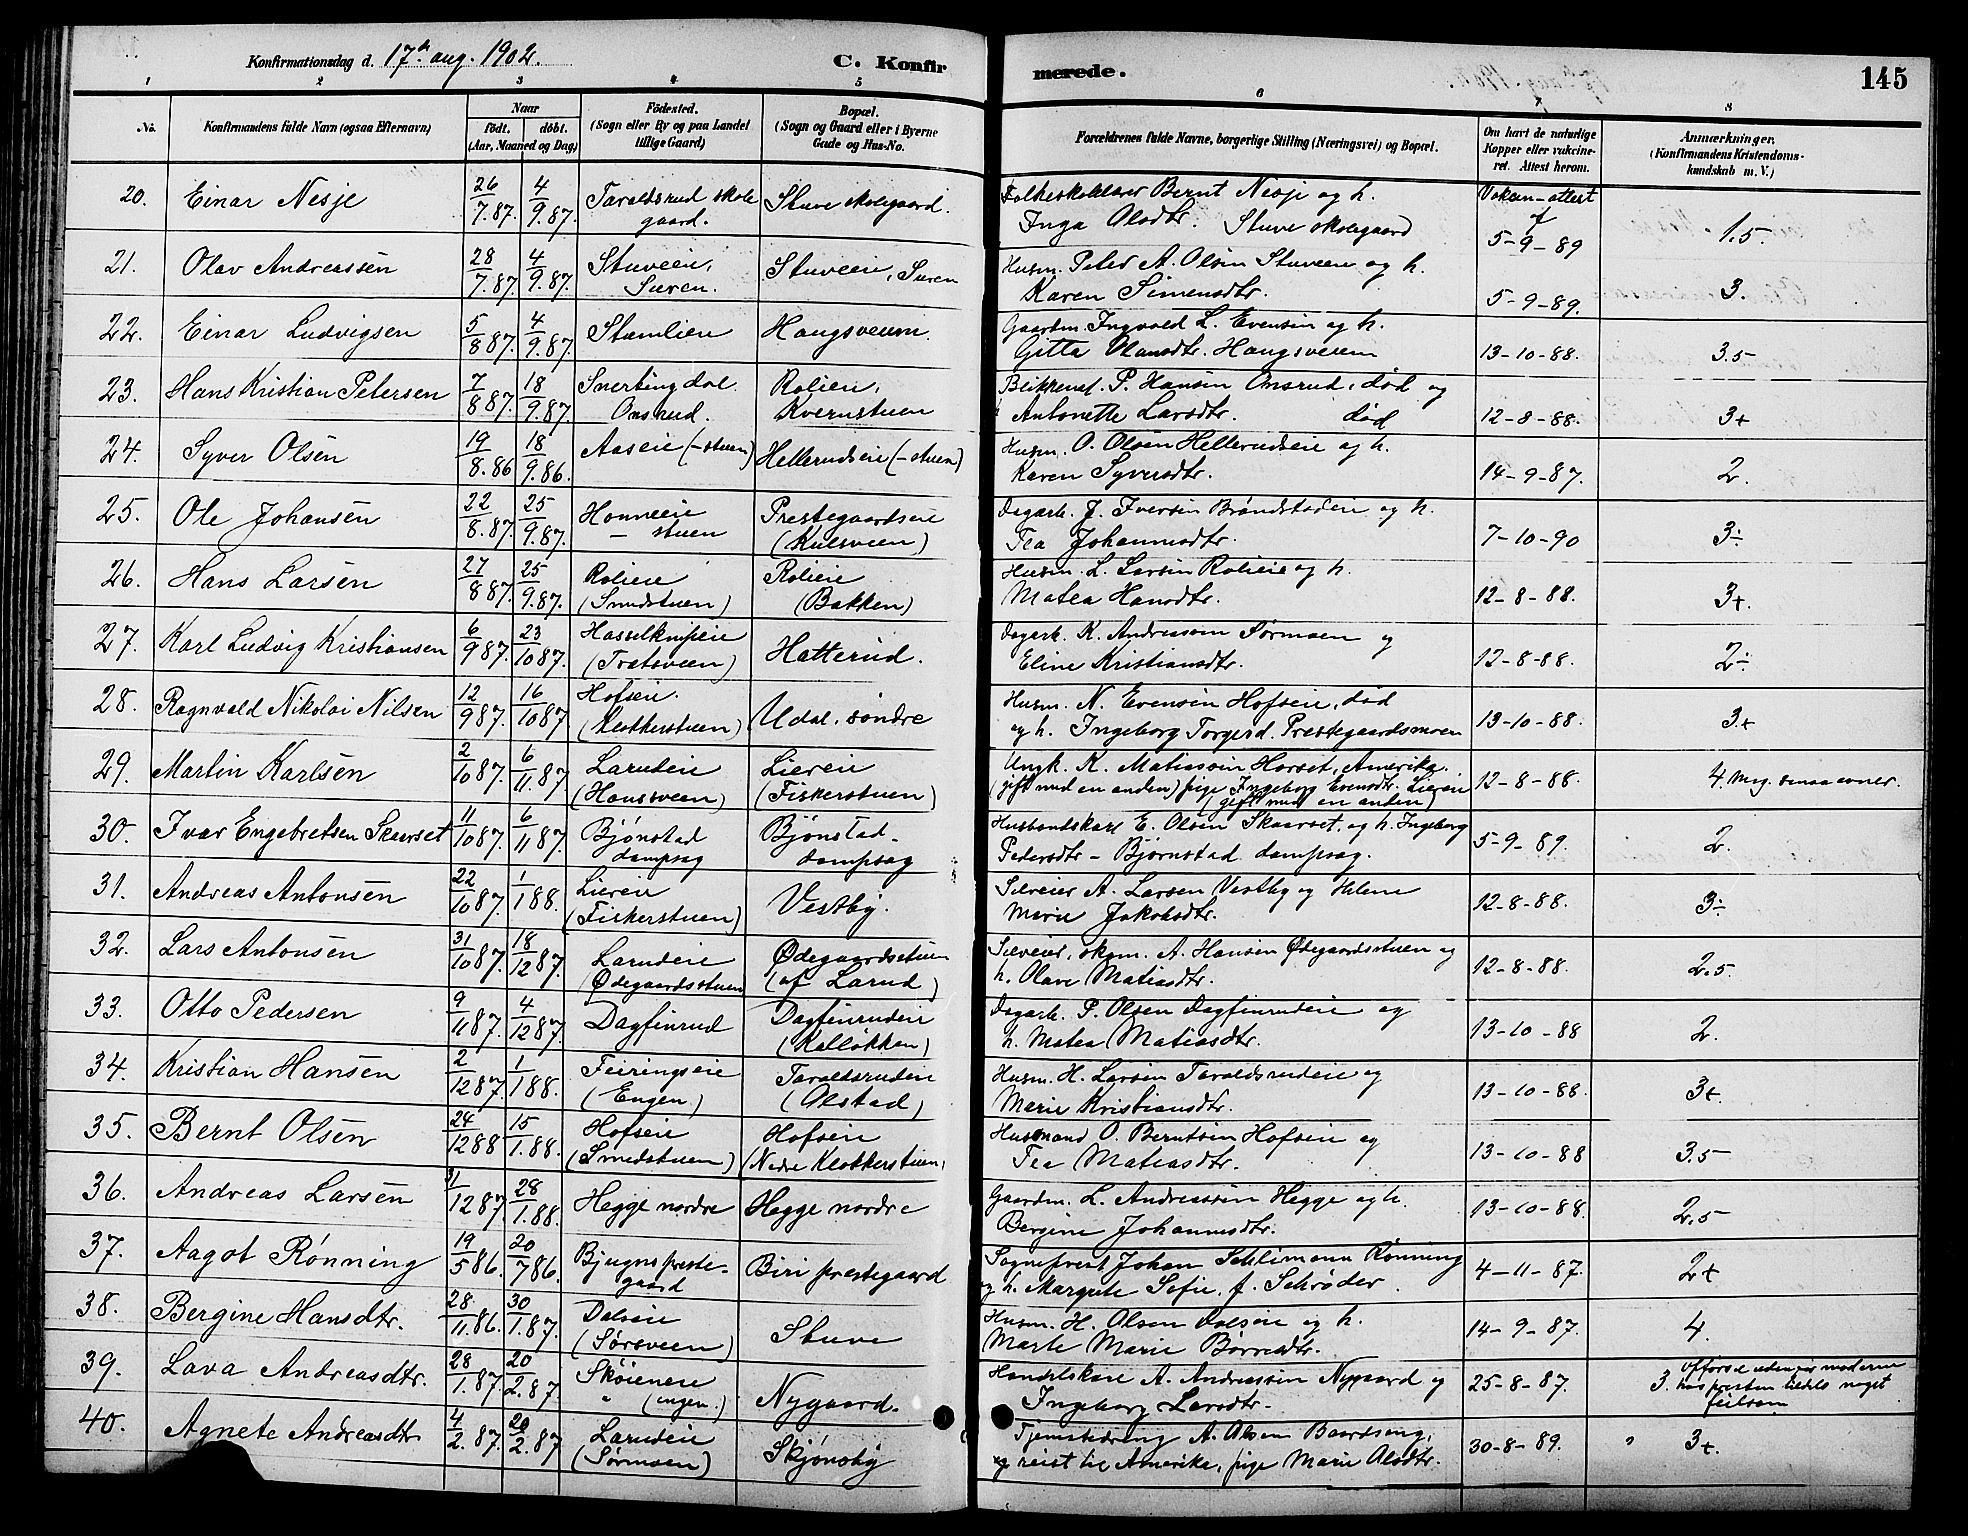 Konfirmationsdag d. 17de aug. 1902.
C. Konfirmerede.
145
1 2 3 4 5 6 7 8
No.
Konfirmandens fulde Navn (ogsaa Efternavn)
Naar
født. døbt.
(Aar, Maaned og Dag)
Fødested.
(Sogn eller By og paa Landet
tillige Gaard)
Bopæl.
(Sogn og Gaard eller i Byerne
Gade og Hus-No.
Forældrenes fulde Navne, borgerlige Stilling (Næringsvei) og Bopæl.
Om havt de naturlige
Kopper eller vakcine-
ret. Attest herom.
Anmærkninger.
(Konfirmandens Kristendoms-
kundskab m. V.)
20. Einar Nesje 26/7.87. 4/9.87. Taraldsrud skole gaard. Stuve skolegaard. Folkeskolelærer Bernt Nesje og h. Inga Olsdtr. Stuve skolegaard Vaksin-attest af 5-9-89 1.5.
21. Olav Andreassen 28/7.87. 4/9.87. Stuveeie, Sveen. Stuveeie, Sveen Husm. Peter A. Olsen Stuveen og h. Karen Simensdtr. 5-9-89. 3.
22. Einar Ludvigsen 5/8 87. 4/9.87. Stumlien Haugsveen. Gaardm. Ingvald L. Evensen og h. Gitta Olausdtr. Haugsveen 13-10-88. 3.5
23. Hans Kristian Petersen 7/8 87. 18/9.87. Snertingdal. Onsrud. Rolien, Kvernstuen P. Hansen Onsrud, død og Antonette Larsdtr. død 12-8-88. 3+
24. Syver Olsen 19/8.86 18/9.86. Aaseie (-stuen) Hellerudseie (-stuen) Husm. O. Olsen Hellerudseie og h. Karen Syversdtr. 14-9-87. 2.
25. Ole Johansen 22/8.87. 25/9.87. Honneeie - stuen Prestegaardseie (Kulsveen) Dagarb. J. Iversen Brøndstadeie og h. Tea Johannesdtr. 7-10-90 3÷
26. Hans Larsen 27/8 87. 25/9.87. Rolieie (Smedstuen) Rolieie (Bakken) Husm. L. Larsen Rolieie og h. Matea Hansdtr. 12-8-88. 3+.
27. Karl Ludvig Kristiansen 6/9 87. 23/10 87. Hasselknipeie (Trætsveen) Hatterud. Dagarb. K. Andreassen Sørmoen og Eline Kristiansdtr. 12-8-88. 2÷
28. Ragnvald Nikolai Nilsen 12/9 87. 16/10 87. Hofseie. (Klokkerstuen) Udal, søndre Husm. N. Evensen Hofseie, død og h. Ingeborg Torgersd. Prestegaardsmoen 13-10-88. 3+
29. Martin Karlsen 2/10 87. 6/11.87 Larudeie (Hansveen) Liereie (Fiskerstuen) Ungk. K. Matiassen Horset, Amerika. (gift med en anden) pige Ingeborg Evensdtr. Liereie (gift med en anden) 12-8-88. 4. meg. smaa evner.
30. Ivar Engebretsen Skaarset 11/10 87. 6/11 87. Bjønstad dampsag Bjønstad- dampsag Husbondskarl E. Olsen Skaarset, og h. Ingeborg Pedersdtr - Bjørnstad dampsag. 5-9-89. 2.
31. Andreas Antonsen 22/10 87. 1/1 88. Liereie (Fiskerstuen) Vestby. Selveier A. Larsen Vestby og Helene Marie Jakobsdtr. 12-8-88. 3÷
32. Lars Antonsen 31/10 87. 18/12 87. Larudeie (Ødegaardsstuen Ødegaardsstuen (af Larud) Selveier, skom. A. Hansen Ødegaardsstuen og h. Olave Matiasdtr. 12-8-88. 2.5.
33. Otto Pedersen 9/11 87. 4/12 87. Dagfinrud Dagfinrudeie (Kalløkken) Dagarb. P. Olsen Dagfinrudeie og h. Matea Matiasdtr. 13-10-88 2.
34. Kristian Hansen 2/12 87. 1/1 88. Feiringseie (Engen) Taraldsrudeie (Olstad) Husm. H. Larsen Taraldsrudeie og Marie Kristiansdtr. 13-10-88. 3+.
35. Bernt Olsen 24/12 88 15/1.88. Hofseie (Smedstuen) Hofseie (Nedre Klokkerstuen) Husmand O. Berntsen Hofseie og Tea Matiasdtr. 13-10-88 3.5
36. Andreas Larsen 31/12 87 28/1.88. Hegge nordre Hegge nordre Gaardm. L. Andreassen Hegge og h. Bergine Johannesdtr. 13-10-88. 2.5
37. Aagot Rønning 19/5 86. 20/7 86. Bjugns preste- gaard Biri prestegaard Sogneprest Johan Schlimann Rønning og h. Margrete Sofie, f. Schrøder. 4-11-87. 2+
38. Bergine Hansdtr. 28/11.86. 30/1.87. Dalseie (Sørsveen) Stuve Husm. H. Olsen Dalseie og h. Marte Marie Børresdtr. 14-9-87. 4.
39. Lava Andreasdtr. 28/1.87. 20/2.87 Skøieneie " (engen.) Nygaard. Handelskarl A. Andreassen Nygaard og Ingeborg Larsdtr. 25-8-87. 3. presten tildels noget
40. Agnete Andreasdtr 4/2.87. 20/2.87 Larudeie (Sørmoen) Skjønsby Tjenestedreng A. Olsen Baardseng, og reist til Amerika, pige Marie Olsdtr. 30-8-89. " 3+.